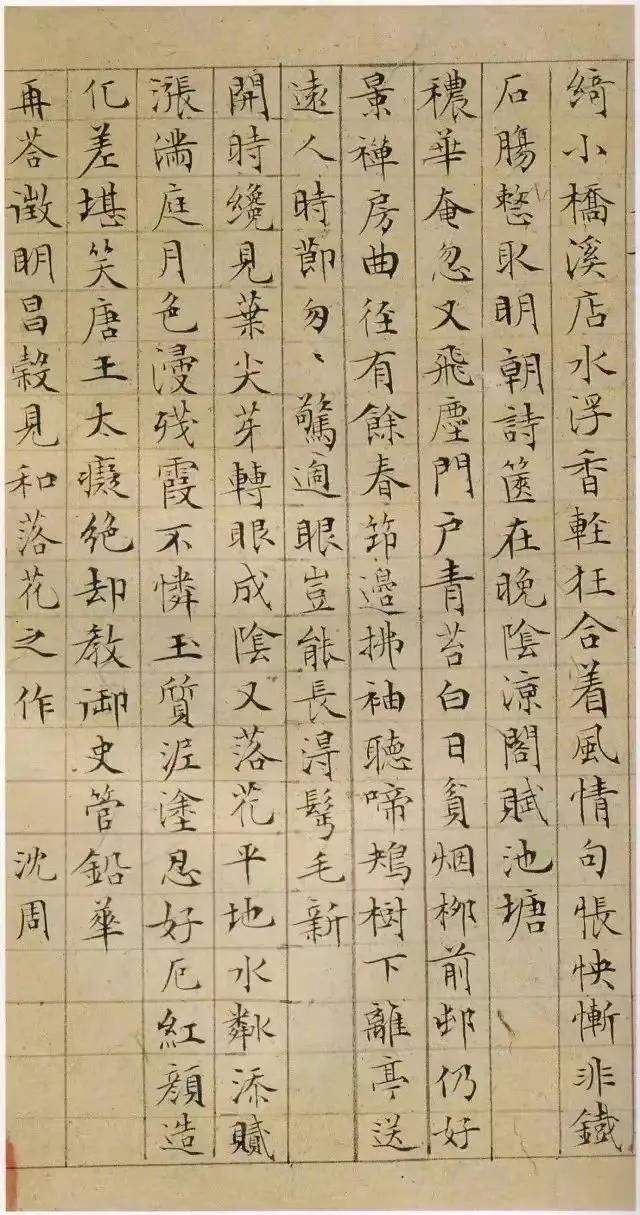 綺小橋溪店水浮香輕狂合着風情句悵怏慚非鐵
石腸整取明朝詩篋在晚陰涼閣賦池塘
穠華奄忽又飛塵門户青苔白日貧烟柳前邨仍好
景禪房曲徑有餘春筇邊拂袖聽啼鴂樹下離亭送
遠人時節匆、驚過眼豈能長得鬢毛新
開時纔見葉尖芽轉眼成陰又落花平地水粼添膩
漲滿庭月色漫殘霞不憐玉質泥塗忍好厄紅顏造
化差堪笑唐王太癡絕却教御史管鉛華
再荅徵明昌穀見和落花之作 沈周